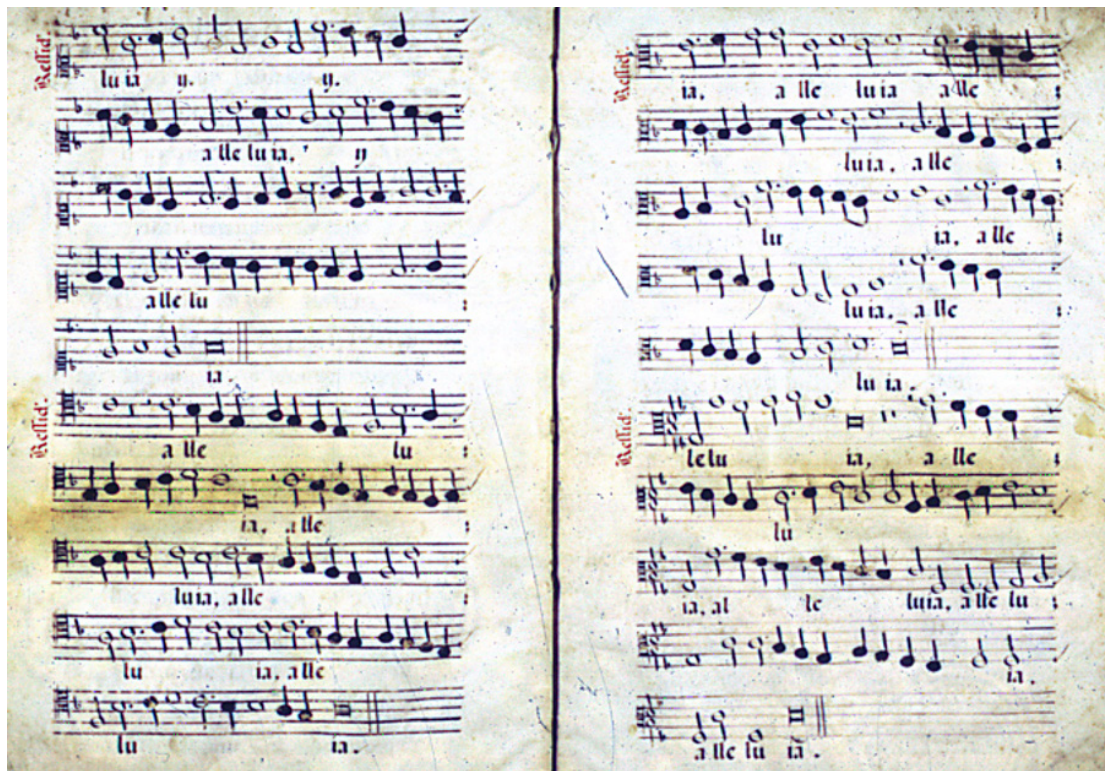 Ressid.
lu ia y. y.
a lle lu ia, y
a lle lu
ia.
Ressid.
a lle lu
ia, a lle
lu ia, a lle
lu ia, a lle
lu ia.
Ressid.
ia, a lle lu ia a lle
lu ia, a lle
lu ia, a lle
lu ia, a lle
lu ia
Ressid.
le lu ia, a lle
lu
ia, al le lu ia, a lle lu
ia.
a lle lu ia.